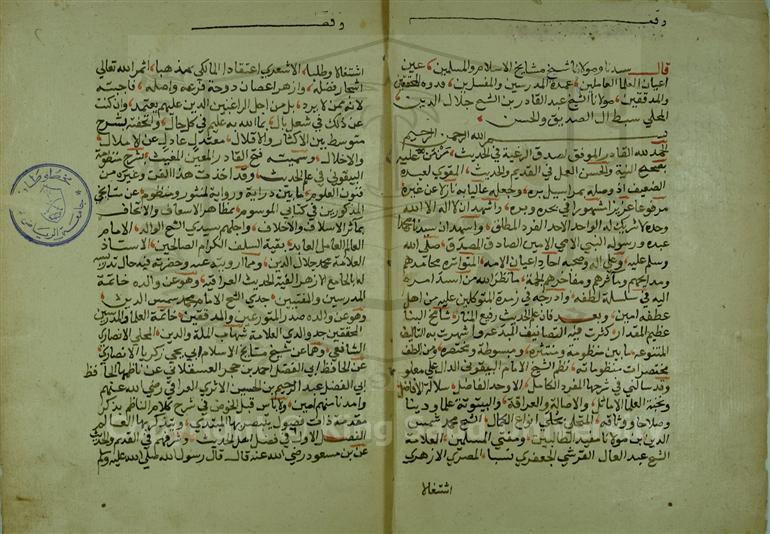 وقف
قال سيدنا ومولانا شيخ مشايخ الاسلام والمسلمين، عين
اعيان العلما العاملين، عمدة المدرسين والمفسلين، قدوه المحققين
والمدققين، مولانا الشيخ عبد القادر بن الشيخ جلال الدين
المحلي سبط ال الصديق والحسن
بسم الله الرحمن الرحيم
الحمد لله القادر الموفق لصدق الرغبة في الحديث،
بصحيح النية والحسن العمل في القديم والحديث، المقوي لعبده
الضعيف اذ وصله بمراسيل بره، وجعله عاليا به نازلا عن غيره
مرفوعا عزيزا مشهورا في بحره وبره، واشهد ان لا اله الا الله
وحده لا شريك له الواحد الاحد الفرد المطلق، واشهد ان سيدنا محمدا
عبده ورسوله النبي الامي الامين الصادق المصدق، صلى الله
وسلم عليه، وعلى اله وصحبه احاد اعيان الامه المتواتره محامدهم
ومدايحهم، وماثرهم ومفاخرهم الجمة، ما نظر الله من اسند امره
اليه في سلسلة لطفه، وادرجه في زمرة المتوكلين عليه من اهل
عطفه امين، وبعد فان علم الحديث رفيع المنار، شامخ البنا
عظيم المقدار، وكثرت فيه التصانيف المبدعه، واشتهرت به التاليف
المتنوعه، ما بين منظومة ومنتثره، ومبسوطة ومختصره، ومن الطف
مختصرات منظوماته، نظم الشيخ الامام البيقوني الدال على معلوماته
وقد سالني في شرحها الفرد الكامل، الاوحد الفاضل، سلالة الافاضل
ونخبة العلما الاماثل، والاصالة والعراقة، والبيتوتة علما ودينا
وصلاحا ووثاقه، المتحلي بحلي انواع الكمال، الشيخ محمد شمس
الدين بن مولانا مفيد الطالبين، ومفتي المسلمين، العلامة
الشيخ عبد العال القرشي الجعفري نسبا، المصري الازهري
اشتغالا
وقف
اشتغالا وطلبا، الاشعري اعتقادا المالكي مذهبا، اثمر الله تعالى
اشجار فضله، وازهر اغصان دوحة فرعه واصله، فاجبته
لانه ممن لا يرد، بل من اجل الراغبين الذين عليهم يعتمد، وان كنت
عن ذلك في شغل بال، بما الله به عليم في كل حال، واتحفته بشرح
متوسط بين الاكثار والاقلال، معتدل عادل عن الاملال
والاخلال، وسميته فتح القادر المعين المغيث، بشرح منظومة
البيقوني في علم الحديث، وقد اخذت هذا الفن وغيره من
فنون العلوم، ما بين دراية ورواية لمنثور ومنظوم، عن مشايخي
المذكورين في كتابي الموسوم، بمظاهر الاسعاف والاتحاف
بماثر الاسلاف والاخلاف، واجلهم سيدي الشيخ الوالد، الامام
العالم العامل العابد، بقية السلف الكرام الصالحين، الاستاذ
العلامة محمد جلال الدين، ومما ارويه عنه وحضرته فيه حال تدريسه
له بالجامع الازهر الفية الحديث العراقية، وهو عن والده خاتمة
المدرسين والمفتيين، جدي الشيخ الامام محمد شمس الدين
وهو عن والده صدر المتورعين والمدققين، خاتمة العلما والمدرسين
المحققين جد والدي العلامة شهاب الملة والدين، المحلي الانصاري
الشافعي، وهما عن شيخ مشايخ الاسلام ابي يحيى زكريا الانصاري
عن الحافظ ابي الفضل احمد بن حجر العسقلاني عن ناظمها الحافظ
ابي الفضل عبد الرحيم بن الحسين الاثري العراقي رضي الله عنهم
وامدنا منهم امين، ولا باس قبل الخوض في شرح كلام الناظم بذكر
مقدمة ذات فصول يتبصر بها المبتدي، ويتذكر بها العالم
الفصل الاول في فضل اهل الحديث وشرفهم في القديم والحديث
عن بن مسعود رضي الله عنه قال، قال رسول الله صلى الله عليه وسلم